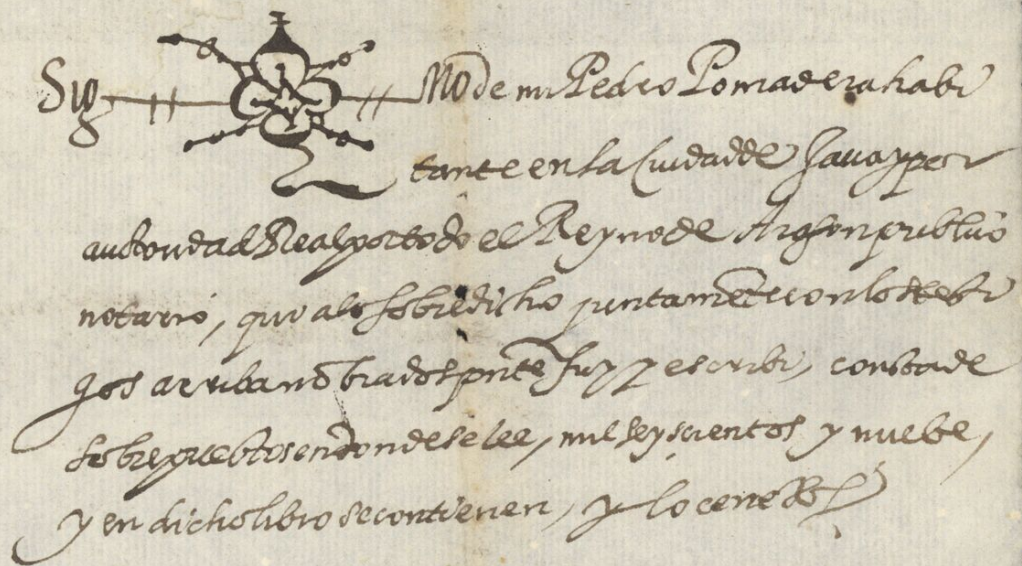 Sig no de mi Pedro Pomadera habi
tante en la Ciudad de Jaca y por
auctoridad Real por todo el Reyno de Aragon publico
notario, qui a lo sobredicho juntamēte con los testi
gos arriba nōbrados pnte fuy y escribi, consta de
sobrepuestos en donde se lee, mil seyscientos y nuebe,
y en dicho libro se contienen, y lo cerre